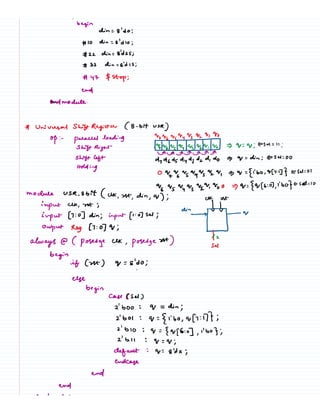 begin
din = 8'd0;
#10 din = 8'd10;
#22 din = 8'd25;
#32 din = 8'd15;
#45 $stop;
end
endmodule
# Universal Shift Register (8-bit USR)
op:- parallel loading
Shift Right
Shift left
Holding
q7 q6 q5 q4 q3 q2 q1 q0
q7 q6 q5 q4 q3 q2 q1 q0 ⇒ q = q; ⊕ Sel = 11;
d7 d6 d5 d4 d3 d2 d1 d0 ⇒ q = din; ⊕ Sel: 00
0 q7 q6 q5 q4 q3 q2 q1 ⇒ q = {1'b0, q[7:1]} ⊕ Sel: 01
q6 q5 q4 q3 q2 q1 q0 0 ⇒ q = {q[6:0], 1'b0} ⊕ Sel: 10
module USR_8bit (clk, rst, din, q);
input clk, rst;
input [7:0] din; input [1:0] Sel;
output reg [7:0] q;
clk rst
din
q
2
Sel
always @ (posedge clk, posedge rst)
begin
if (rst) q = 8'd0;
else
begin
Case (Sel)
2'b00 : q = din;
2'b01 : q = {1'b0, q[7:1]};
2'b10 : q = {q[6:0], 1'b0};
2'b11 : q = q;
default : q = 8'dx;
endcase
end
end